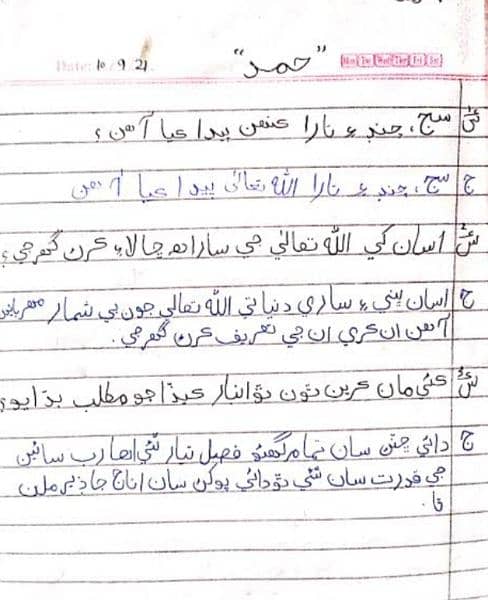 Date: 10/9/21
"حمد"
Mon Tue Wed Thu Fri Sat
س١ سج، چنڊ ۽ تارا ڪنهن پيدا ڪيا آهن؟
ج سج، چنڊ ۽ تارا الله تعاليٰ پيدا ڪيا آهن
س٢ اسان کي الله تعاليٰ جي ساراهه ڇالاءِ ڪرڻ گهرجي؟
ج اسان ڀني ۽ ساري دنيا تي الله تعاليٰ جون بي شمار مهربانيون
آهن ان ڪري ان جي تعريف ڪرڻ گهرجي.
س٣ ڪڻي مان ڪرين ٿون ٿو انبار کڏا جو مطلب ٻڌايو؟
ج داڻي ڇٽڻ سان تمام گهڻو فصل تيار ٿئي اها رب سائين
جي قدرت سان ٿئي ٿو داڻي پوکڻ سان اناج جا ڍير ملن
ٿا.